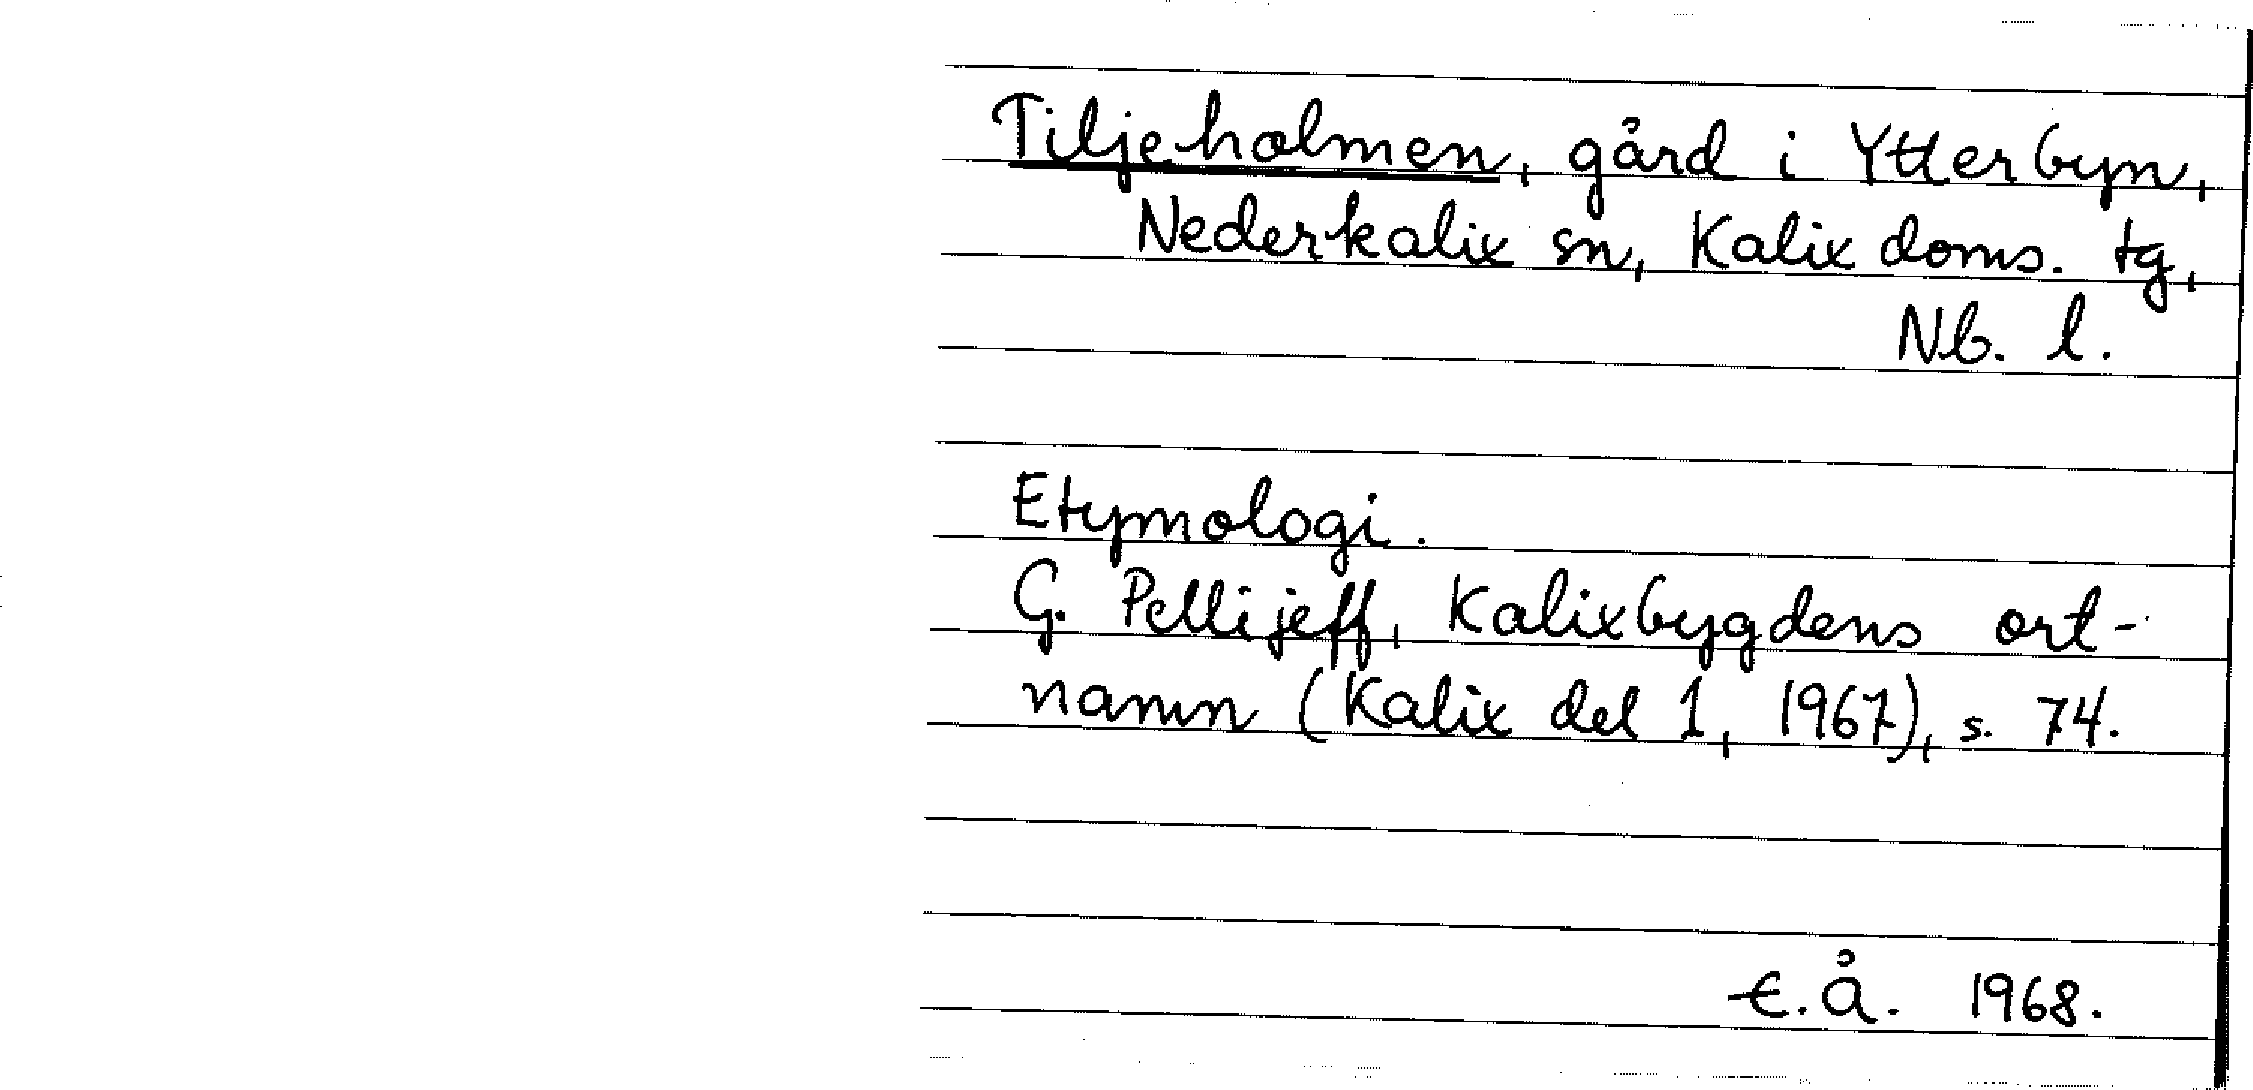 Tiljeholmen, gård i Ytterbyn,
Nederkalix sn, Kalix doms. tg,
Nb. l.
Etymologi.
G. Pellijeff, Kalixbygdens ort-
namn (Kalix del 1, 1967), s. 74.
E.Å. 1968.